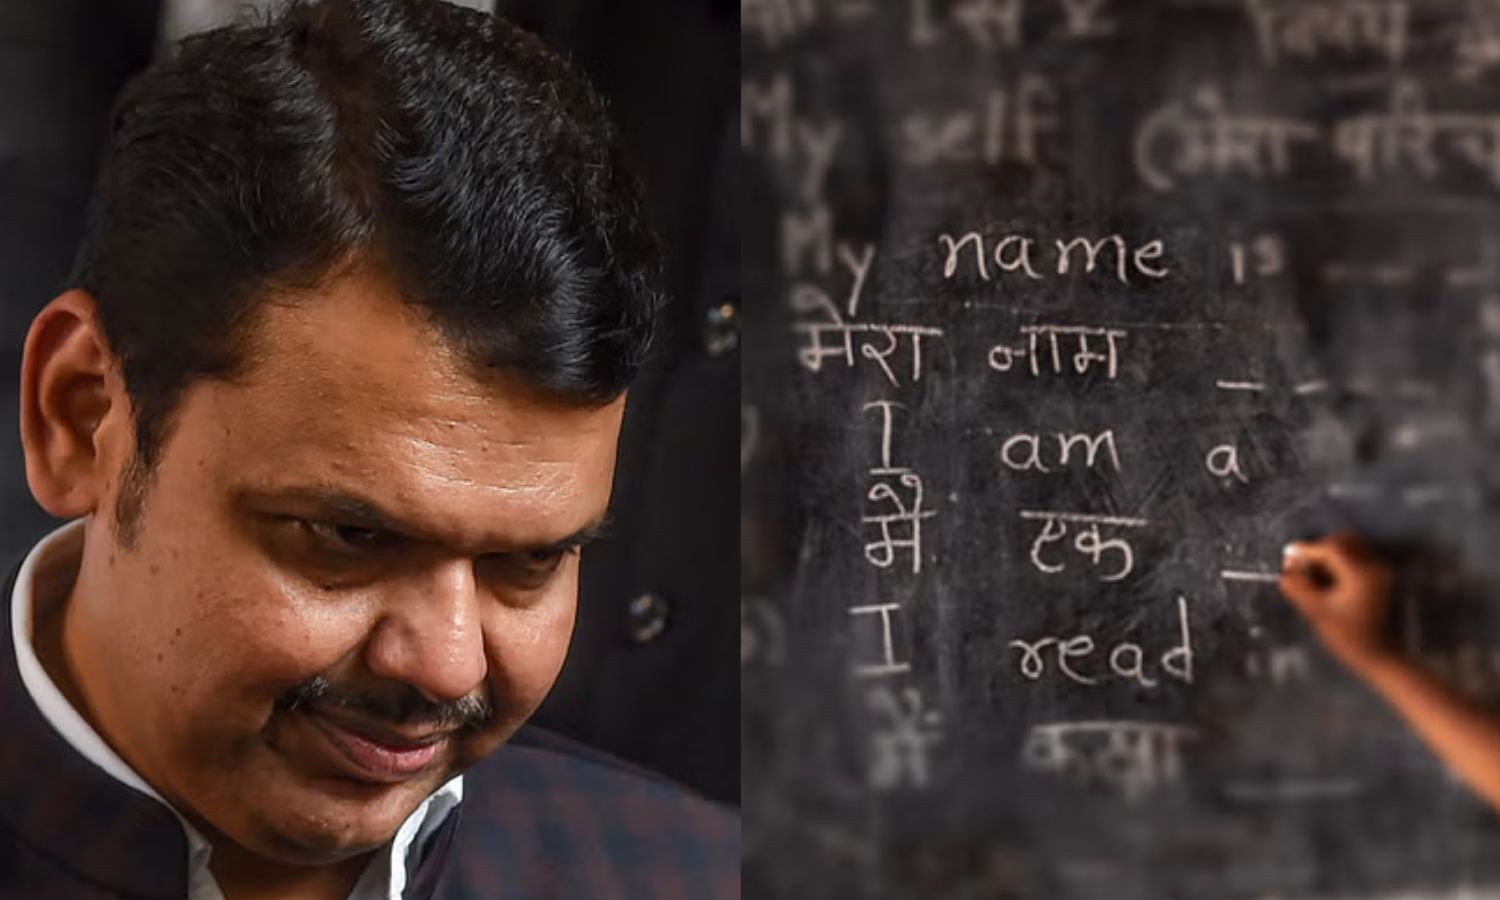 My self (मेरा परिच
My name is _ _ _
मेरा नाम _ _ _
I am a _ _
मैं एक __
I read in
मैं कक्षा ____